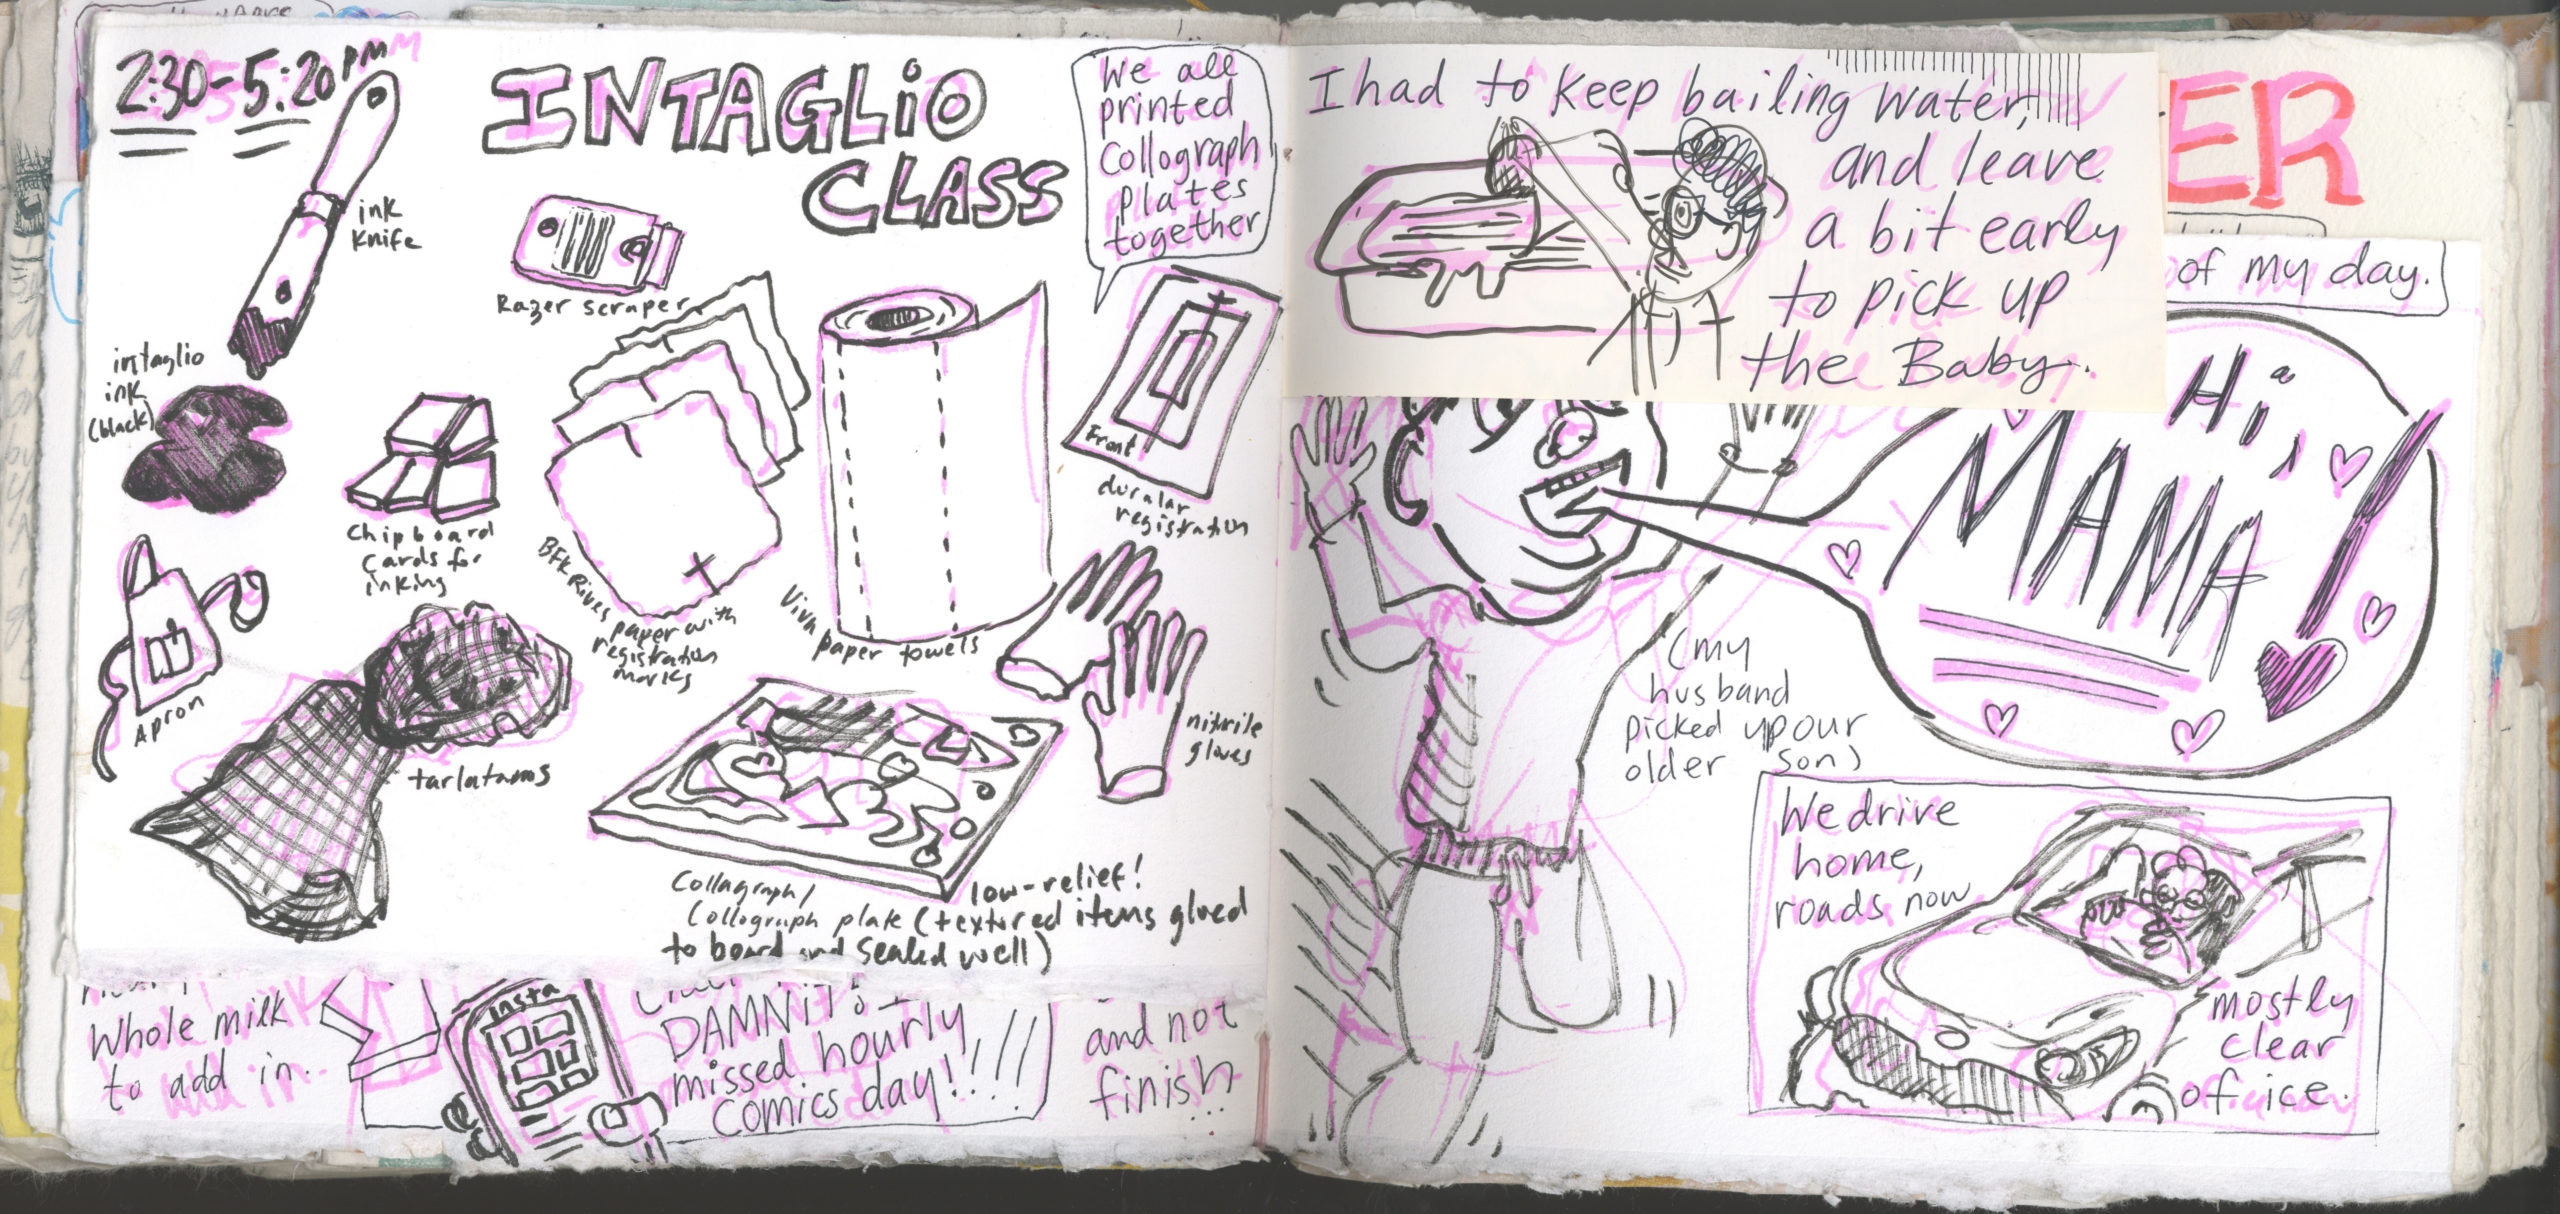 2:30-5:20PM
INTAGLiO
CLASS
We all
printed
Collograph
Plates
together
ink
knife
Razer scraper
intaglio
ink
(black)
Chipboard
Cards for
inking
BFK Rives
paper with
registration
marks
Viva paper towels
Front
duralar
registration
Apron
tarlatans
nitrile
gloves
Collagraph/
Collograph plate (textured items glued
to board and sealed well)
low-relief!
Whole milk
to add in.
insta
DAMNiT! I
missed hourly
Comics day!!!!!
and not
finish
...
I had to keep bailing water,
and leave
a bit early
to pick up
the Baby.
ER
of my day.
Hi,
MAMA!
(my
husband
picked up our
older son)
We drive
home,
roads now
mostly
clear
of ice.